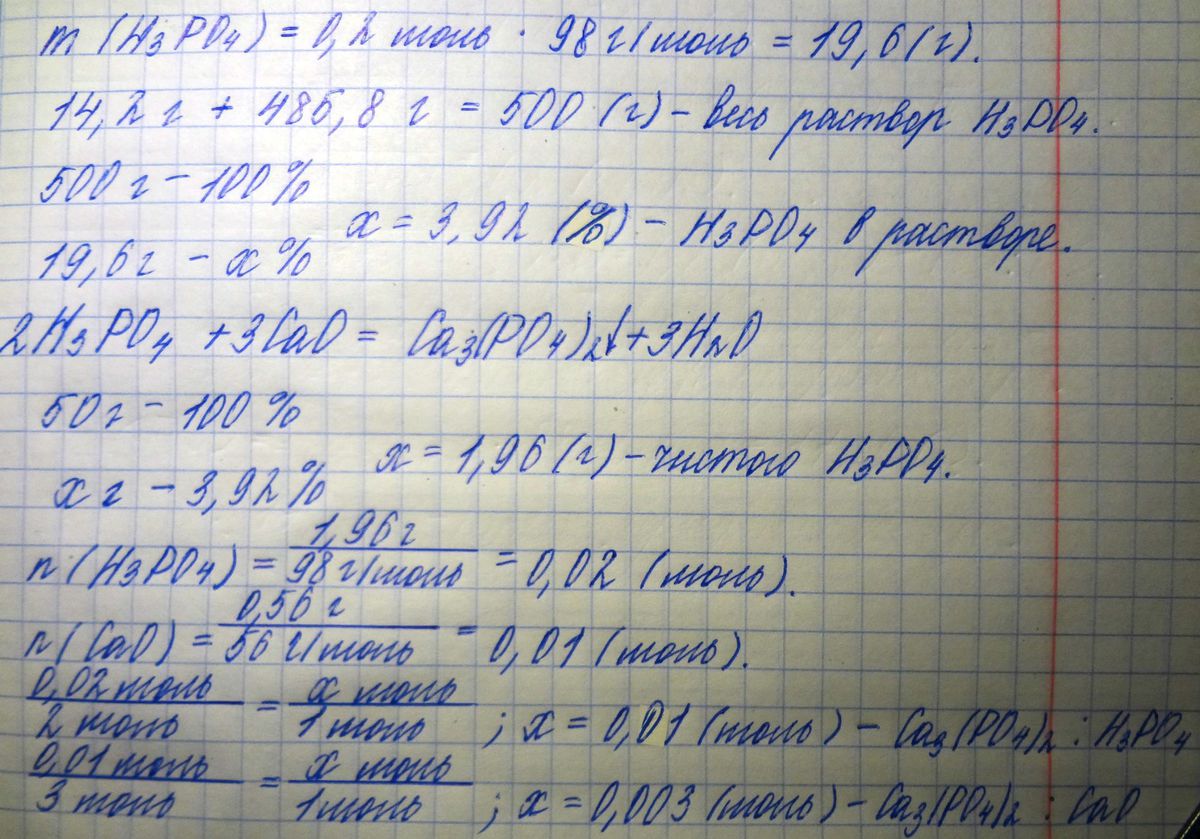 m (H₃PO₄) = 0,2 моль · 98 г/моль = 19,6 (г).
14,2 г + 485,8 г = 500 (г) – весь раствор H₃PO₄.
500 г – 100 %
x = 3,92 (%) – H₃PO₄ в растворе.
19,6 г – x %
2H₃PO₄ + 3CaO = Ca₃(PO₄)₂↓ + 3H₂O
50 г – 100 %
x = 1,96 (г) – чистого H₃PO₄.
x г – 3,92 %
n (H₃PO₄) = 1,96 г / 98 г/моль = 0,02 (моль).
n (CaO) = 0,56 г / 56 г/моль = 0,01 (моль).
0,02 моль / 2 моль = x моль / 1 моль ; x = 0,01 (моль) – Ca₃(PO₄)₂ : H₃PO₄
0,01 моль / 3 моль = x моль / 1 моль ; x = 0,003 (моль) – Ca₃(PO₄)₂ : CaO